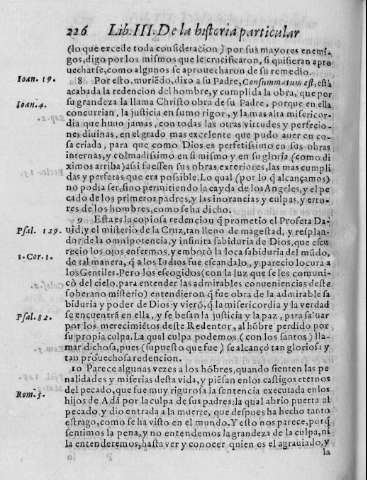 226 Lib. III. De la historia particular
(lo que excede toda consideracion) por sus mayores enemi-
gos, digo por los mismos que le crucificaron, si quisieran apro
uecharse, como algunos se aprouecharon de su remedio.
Ioan. 19. 8 Por esto, muriẽdo, dixo a su Padre, Consummatum est, està
acabada la redencion del hombre, y cumplida la obra, que por
Ioan. 4. su grandeza la llama Christo obra de su Padre, porque en ella
concurrian, la justicia en sumo rigor, y la mas alta misericor-
dia que huuo jamas, con todas las otras virtudes y perfecio-
nes diuinas, en el grado mas excelente que pudo auer en co-
sa criada, para que como Dios es perfetissimo en sus obras
internas, y colmadissimo en si mismo y en su gloria (como di
ximos arriba) assi fuessen sus obras exteriores, las mas cumpli
das y perfetas que era possible. Lo qual (por lo q̃ alcançamos)
no podia ser, sino permitiendo la cayda de los Angeles, y el pe
cado de los primeros padres, y las inorancias y culpas, y erro-
res de los hombres, como se ha dicho.
9 Esta es la copiosa redencion q̃ prometio el Profeta Da-
Psal. 129. uid, y el misterio de la Cruz, tan lleno de magestad, y resplan-
dor de la omnipotencia, y infinita sabiduria de Dios, que escu
recio los ojos enfermos, y emboto la loca sabiduria del mũdo,
1. Cor. 1. de tal manera, q̃ a los Iudios fue escandalo, y parecio locura a
los Gentiles. Pero los escogidos (con la luz que se les comuni-
cò del cielo, para entender las admirables conueniencias deste
soberano misterio) entendieron q̃ fue obra de la admirable sa
biduria y poder de Dios y vierõ, q̃ la misericordia y la verdad
Psal. 82. se encuentrã en ella, y se besan la justicia y la paz, para saluar
por los merecimiẽtos deste Redentor, al hõbre perdido por
su propia culpa. La qual culpa podemos (con los santos) lla-
mar dichosa, pues (supuesto que fue) se alcançò tan gloriosa y
tan prouechosa redencion.
10 Parece algunas vezes a los hõbres, quando sienten las pe
nalidades y miserias desta vida, y piẽsan en los castigos eternos
del pecado, que fue muy rigurosa la sentencia executada en los
Rom. 5. hijos de Adã por la culpa de sus padres: la qual abrio puerta al
pecado, y dio entrada a la muerte, que despues ha hecho tanto
estrago, como se ha visto en el mundo. Y esto nos parece, porq̃
sentimos la pena, y no entendemos la grandeza de la culpa, ni
la entenderemos, hasta ver y conocer quien es el agrauiado, y
la